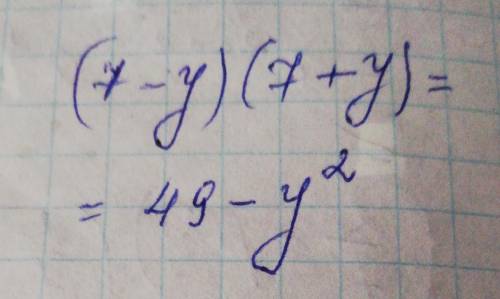 (7 - y)(7 + y) =
= 49 - y²